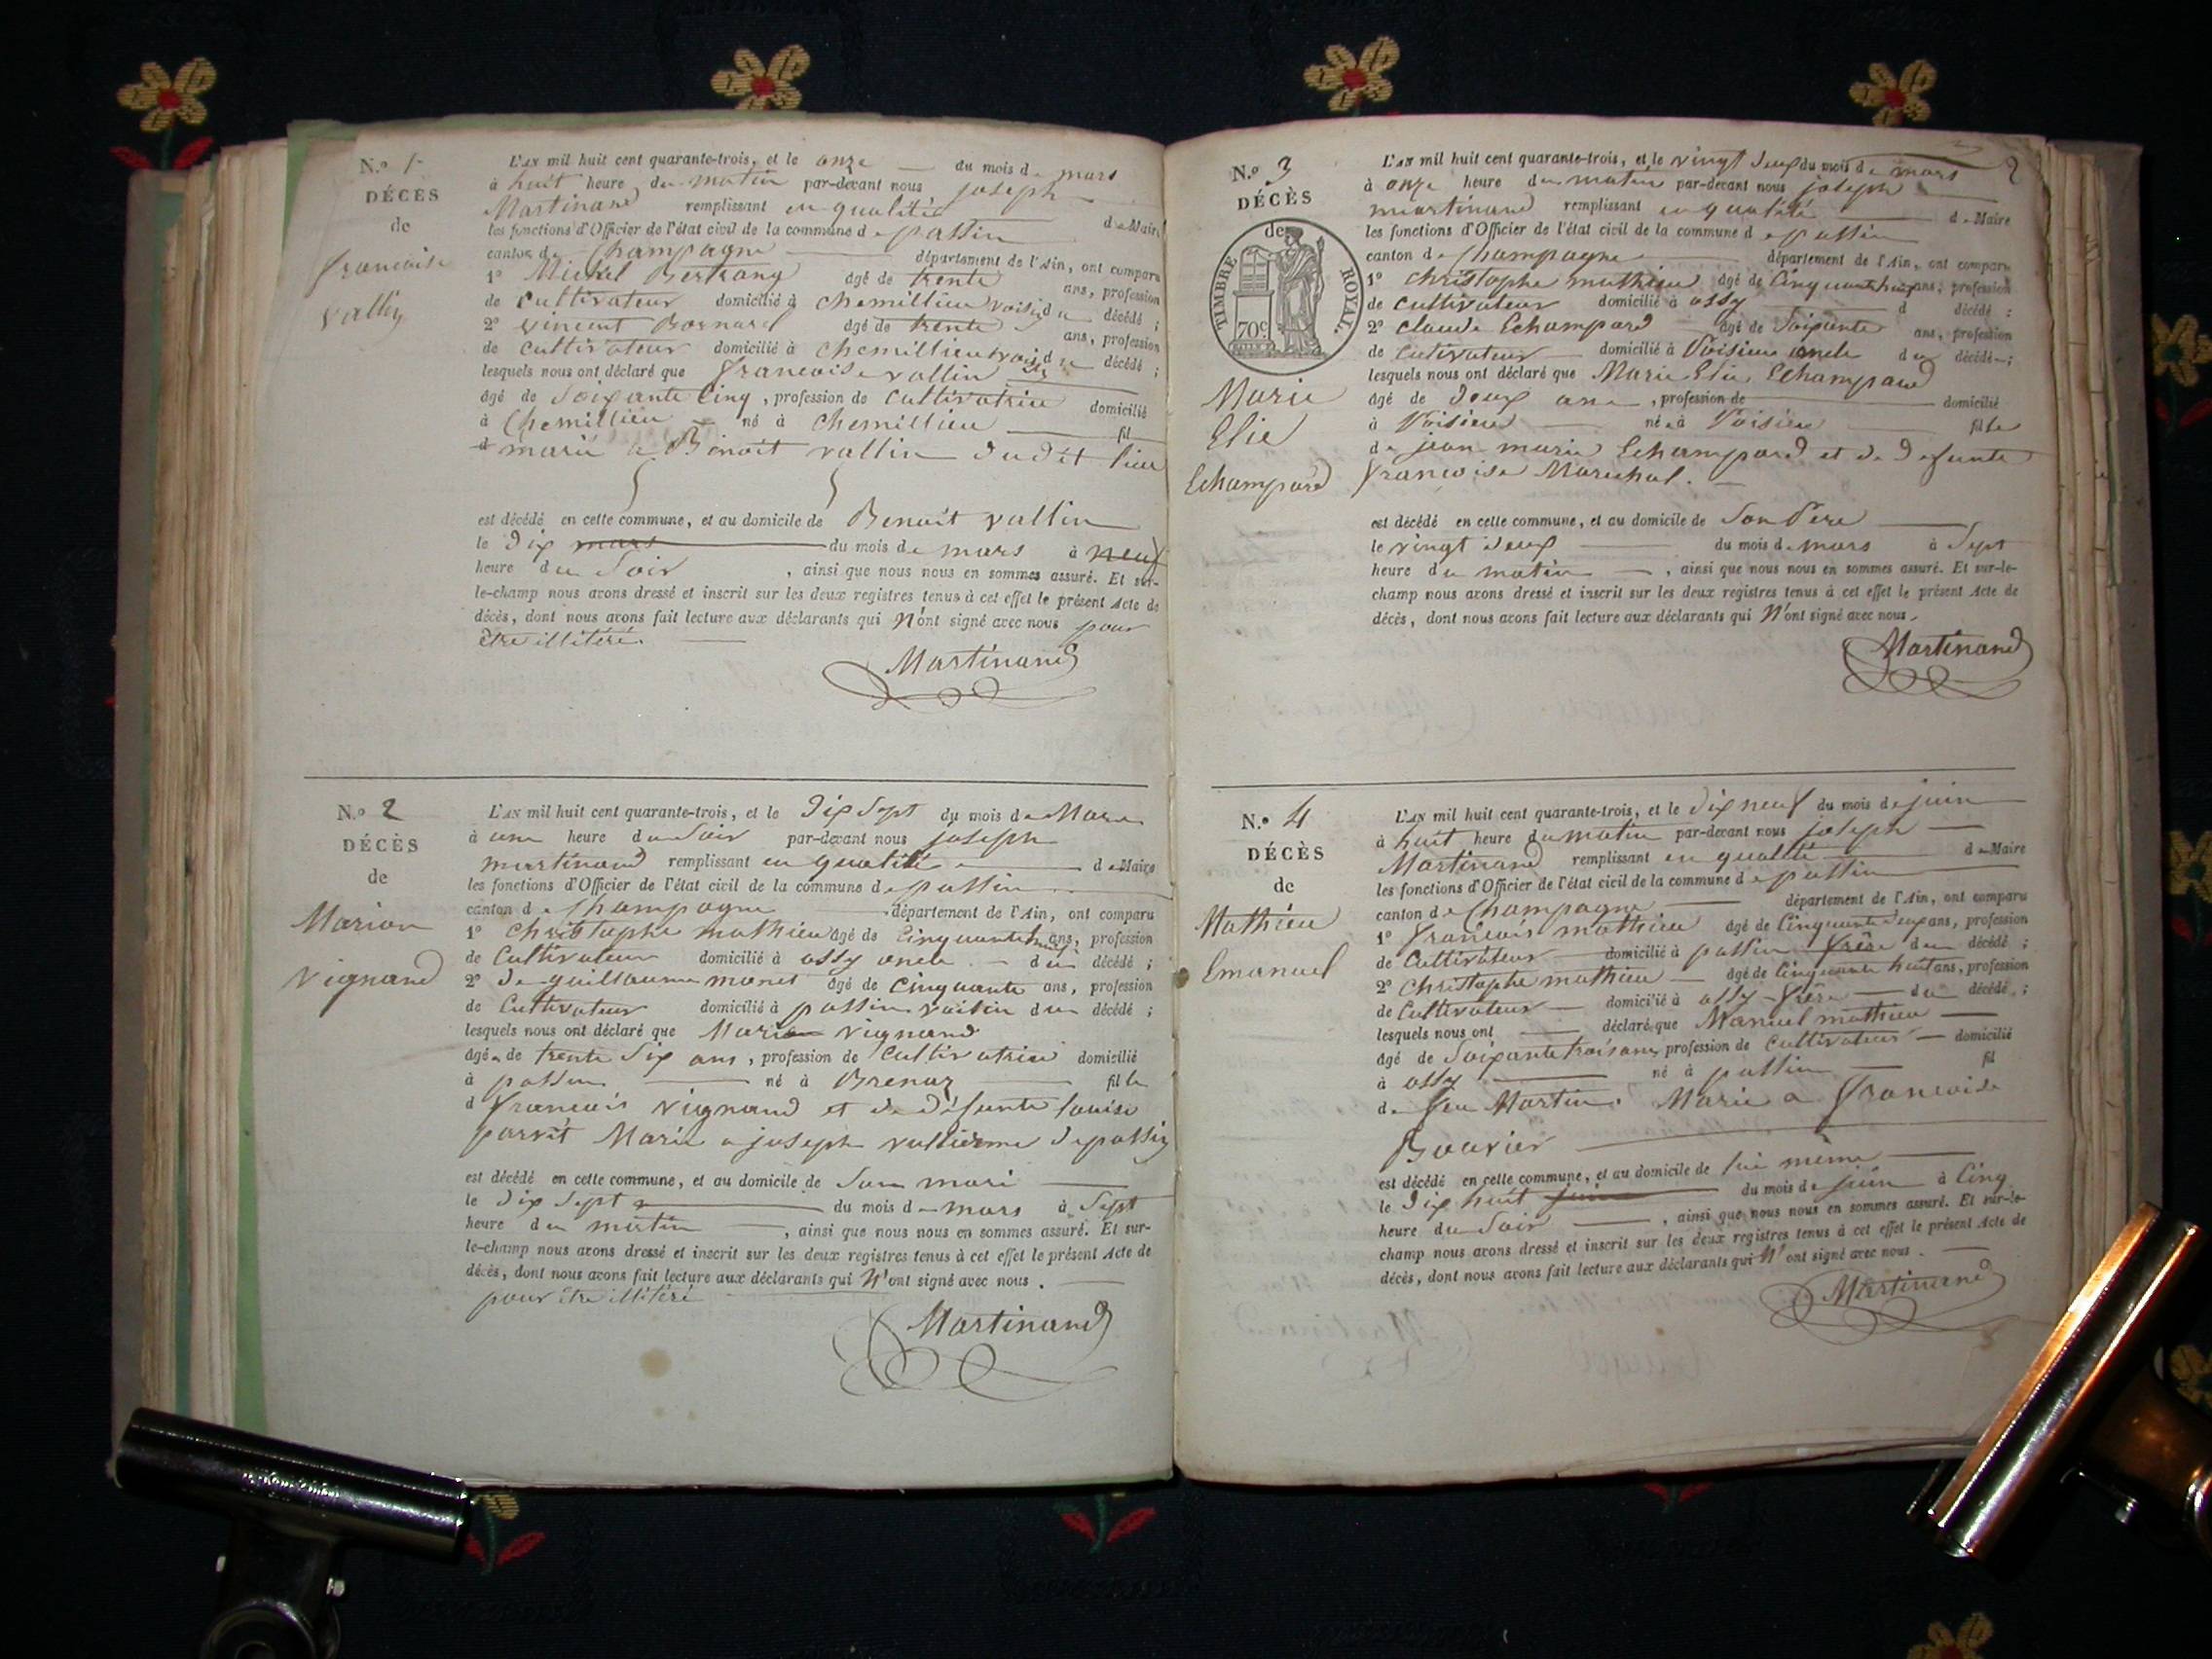 N.º 1
DÉCÈS
de
francoise
vallin
L'AN mil huit cent quarante-trois, et le onze du mois de mars
à huit heure du matin par-devant nous joseph
Martinand remplissant en qualitée de Maire
les fonctions d'Officier de l'état civil de la commune de passin
canton de Champagne département de l'Ain, ont comparu
1º Michel Bertrang agé de trente ans, profession
de cultivateur domicilié à chemillieu voisin du décédé ;
2º vincent Bornard agé de trente ans, profession
de cultivateur domicilié à chemillieu voisin du décédé ;
lesquels nous ont déclaré que francoise vallin
agé de soixante cinq, profession de cultivatrice domicilié
à Chemillieu né à chemillieu fil
d marié a Binoit vallin dudit lieu
est décédé en cette commune, et au domicile de Benoit vallin
le dix mars du mois de mars à neuf
heure du soir, ainsi que nous nous en sommes assuré. Et sur-
le-champ nous avons dressé et inscrit sur les deux registres tenus à cet effet le présent Acte de
décès, dont nous avons fait lecture aux déclarants qui n'ont signé avec nous pour
être illitéré.
Martinand
N.º 2
DÉCÈS
de
Marion
vignand
L'AN mil huit cent quarante-trois, et le dix sept du mois de Mars
à une heure du soir par-devant nous joseph
martinand remplissant en qualité de Maire
les fonctions d'Officier de l'état civil de la commune de passin
canton de Champagne département de l'Ain, ont comparu
1º Christophe mathieu agé de cinquante huit ans, profession
de Cultivateur domicilié à ossy oncle du décédé ;
2º de guillaume monet agé de cinquante ans, profession
de Cultivateur domicilié à passin voisin du décédé ;
lesquels nous ont déclaré que Marion vignand
agée de trente six ans, profession de cultivatrice domicilié
à passin né à Brenaz fille
d françois vignand et de défunte louise
parvit Marié a joseph vullierme de passin
est décédé en cette commune, et au domicile de son mari
le dix sept du mois de mars à sept
heure du matin, ainsi que nous nous en sommes assuré. Et sur-
le-champ nous avons dressé et inscrit sur les deux registres tenus à cet effet le présent Acte de
décès, dont nous avons fait lecture aux déclarants qui n'ont signé avec nous.
pour être illitéré
Martinand
2
N.º 3
DÉCÈS
de
TIMBRE ROYAL.
70c
Marie
Elie
Echampard
L'AN mil huit cent quarante-trois, et le vingt deux du mois de mars
à onze heure du matin par-devant nous joseph
martinand remplissant en qualité de Maire
les fonctions d'Officier de l'état civil de la commune de passin
canton de Champagne département de l'Ain, ont comparu
1º christophe mathieu agé de cinquante huit ans, profession
de cultivateur domicilié à ossy d décédé ;
2º claude Echampard agé de soixante ans, profession
de cutivateur domicilié à Poisieu oncle du décédé ;
lesquels nous ont déclaré que Marie Elie Echampard
agé de deux ans, profession de domicilié
à Poisieu née à Poisieu fille
de jean marie Echampard et de defunte
francoise Marechal.
est décédé en cette commune, et au domicile de son Pere
le vingt deux du mois de mars à sept
heure du matin, ainsi que nous nous en sommes assuré. Et sur-le-
champ nous avons dressé et inscrit sur les deux registres tenus à cet effet le présent Acte de
décès, dont nous avons fait lecture aux déclarants qui n'ont signé avec nous.
Martinand
N.º 4
DÉCÈS
de
Mathieu
Emanuel
L'AN mil huit cent quarante-trois, et le dix neuf du mois de juin
à huit heure du matin par-devant nous joseph
Martinand remplissant en qualité de Maire
les fonctions d'Officier de l'état civil de la commune de passin
canton de Champagne département de l'Ain, ont comparu
1º françois mathieu agé de cinquante deux ans, profession
de Cultivateur domicilié à passin frère du décédé ;
2º Christophe mathieu agé de cinquante huit ans, profession
de Cultivateur domicilié à ossy frère du décédé ;
lesquels nous ont déclaré que Manuel mathieu
agé de soixante trois ans, profession de cultivateur domicilié
à ossy né à passin fil
de feu Martin. Marié a francoise
Bouvier
est décédé en cette commune, et au domicile de lui même
le dix huit juin du mois de juin à cinq
heure du soir, ainsi que nous nous en sommes assuré. Et sur-le-
champ nous avons dressé et inscrit sur les deux registres tenus à cet effet le présent Acte de
décès, dont nous avons fait lecture aux déclarants qui n'ont signé avec nous.
Martinand